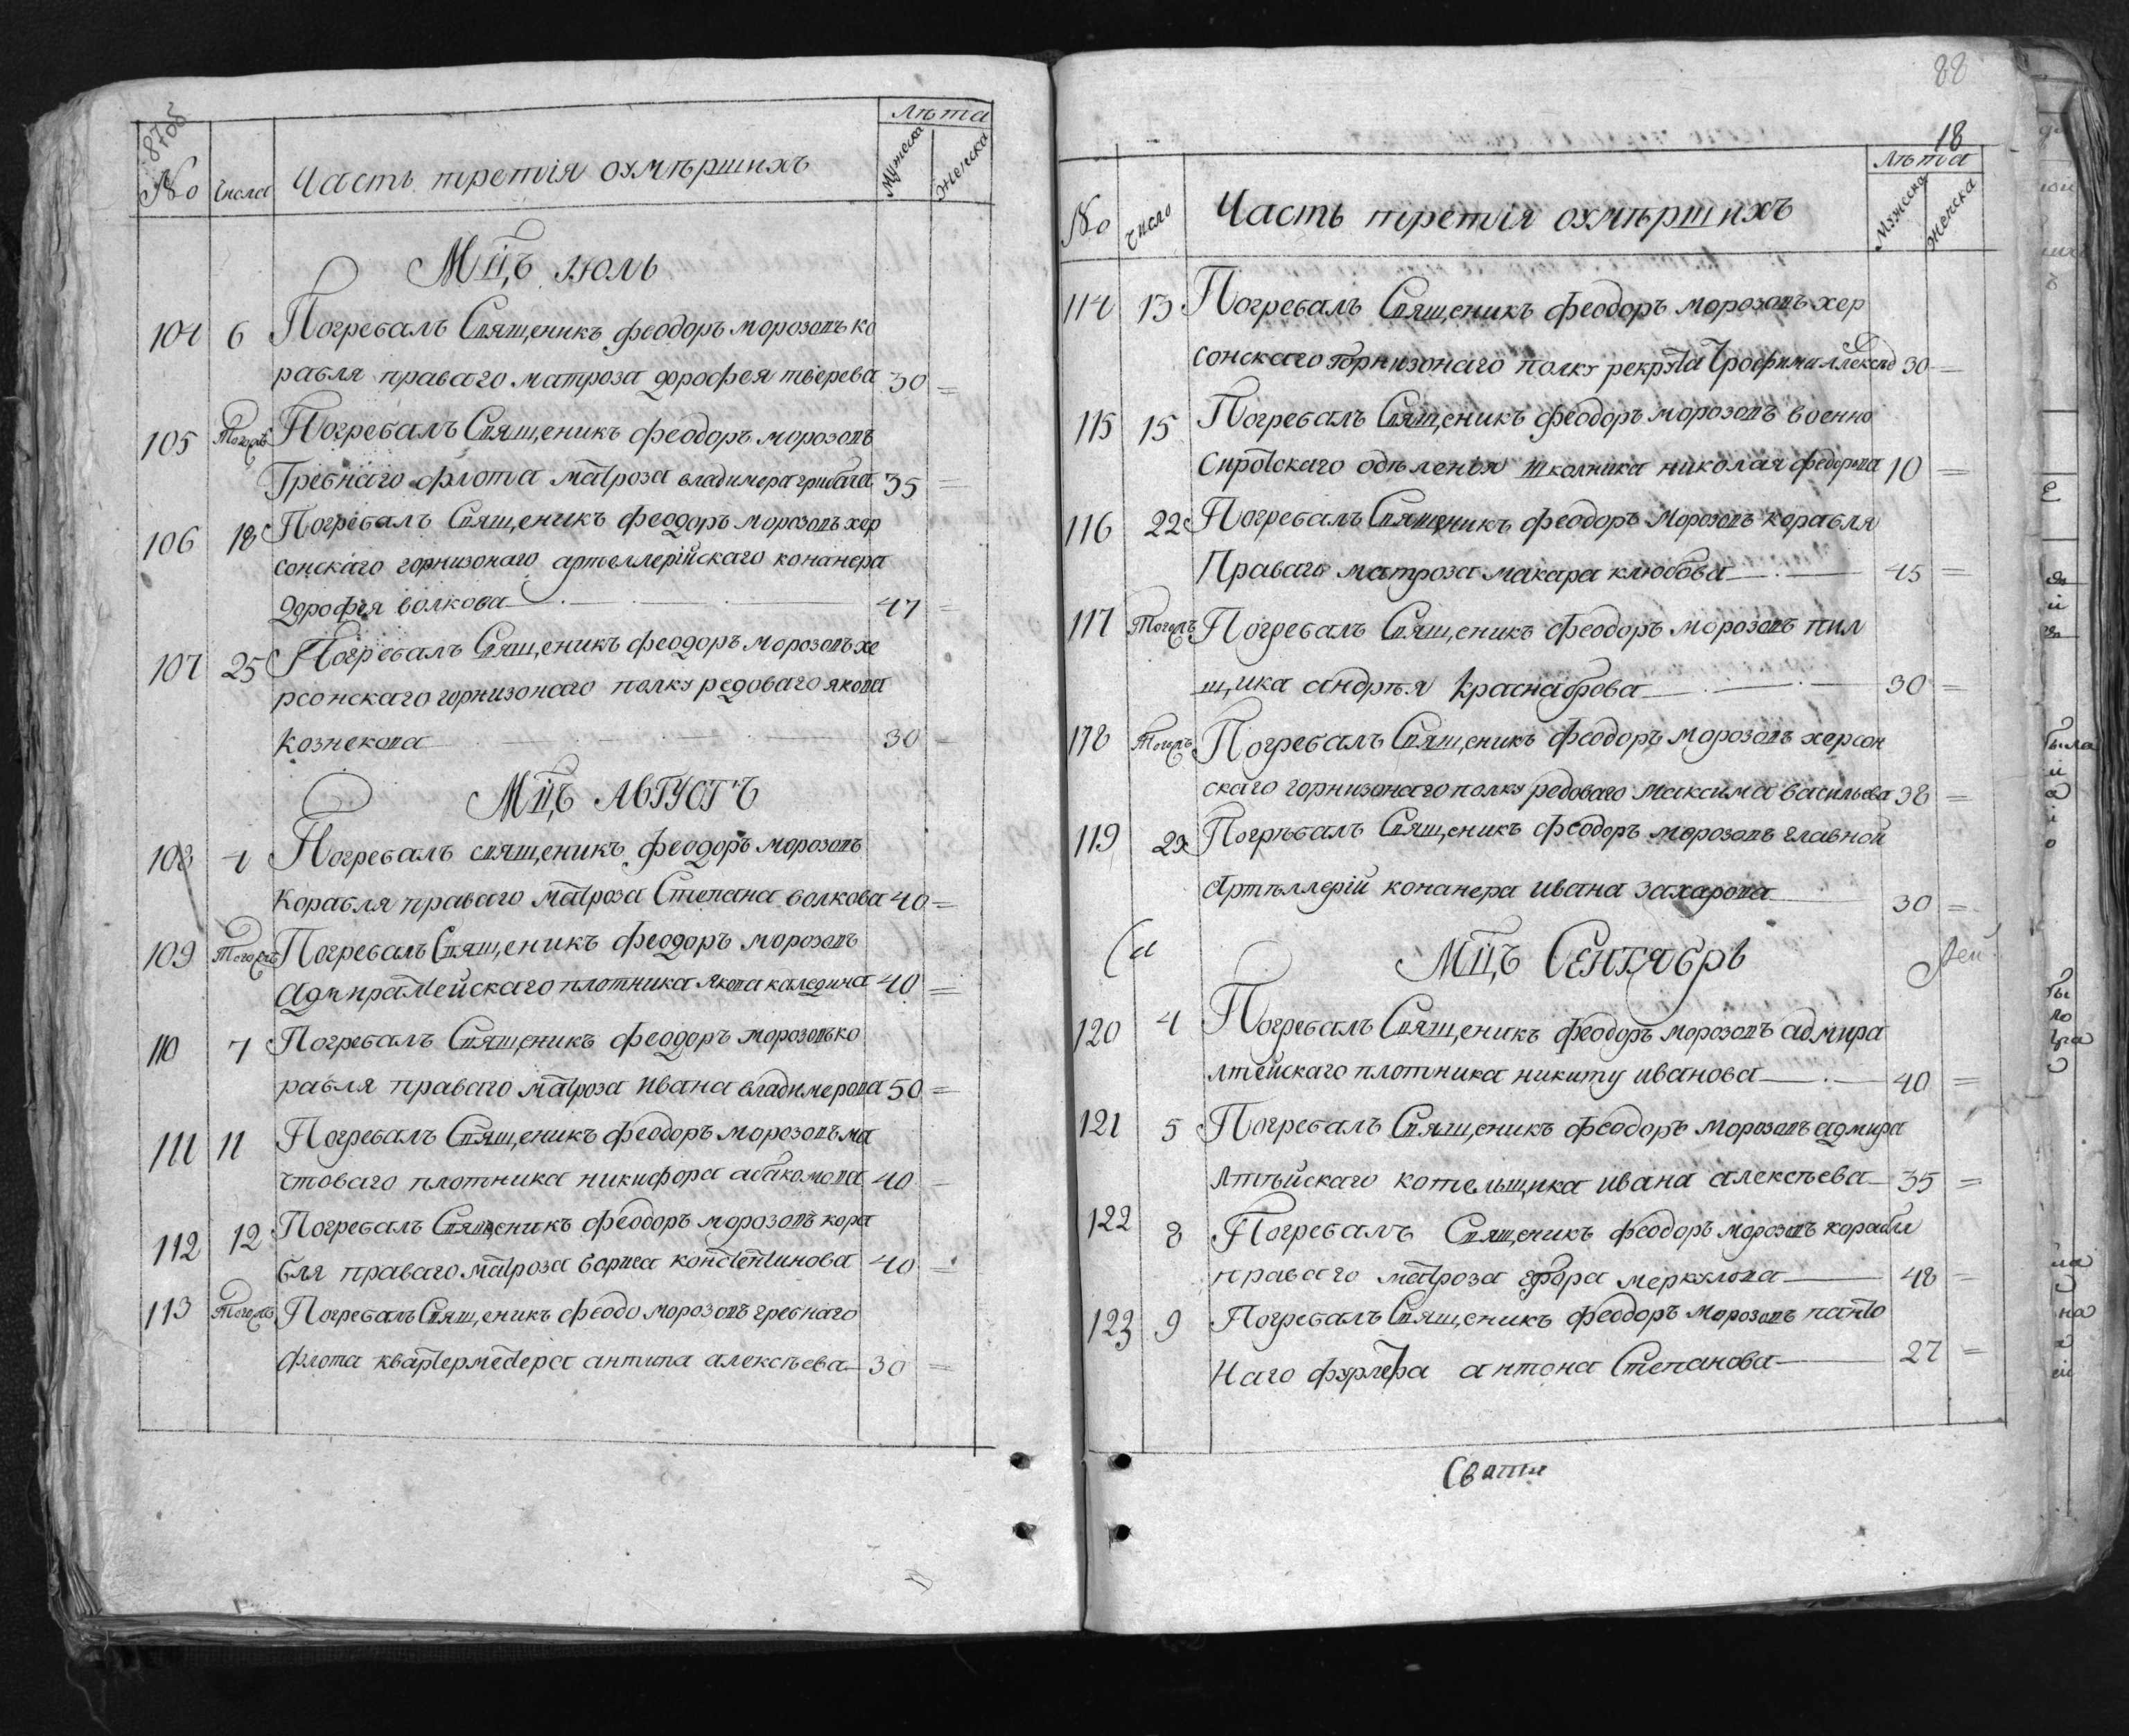 87об
Лѣта
No Числа Часть третїя оумѣршихъ Мужеска Женска
Мц̃ъ июль
104 6 Погребалъ Священикъ феодоръ морозовъ ко
рабля праваго матроза дорофея тверева 30 =
105 Тогожъ Погребалъ Священикъ феодоръ морозовъ
Гребнаго флота матроза владимера 35 =
106 18 Погребалъ Священикъ феодоръ морозовъ хер
сонскаго горнизонаго артеллерійскаго конанера
Дорофея волкова 47 =
107 25 Погребалъ Священикъ феодоръ морозовъ хе
рсонскаго горнизонаго полку редоваго якова
кознекова 30 =
Мц̃ъ Августъ
108 4 Погребалъ священикъ феодоръ морозовъ
корабля праваго матроза Степана волкова 40 =
109 Тогожъ Погребалъ Священикъ феодоръ морозовъ
адмиралтейскаго плотника якова каледина 40 =
110 7 Погребалъ Священикъ феодоръ морозовъ ко
рабля праваго матроза ивана владимерова 50 =
111 11 Погребалъ Священикъ феодоръ морозовъ ма
чтоваго плотника никифора абакомова 40 =
112 12 Погребалъ Священикъ феодоръ морозовъ кора
бля праваго матроза бориса констентинова 40 =
113 Тогожъ Погребалъ Священикъ феодо морозовъ гребнаго
флота квартерместера антипа алексѣева 30 =
88
18
Лѣта
No Число Часть третїя оумѣршихъ Мужеска Женска
114 13 Погребалъ Священикъ феодоръ морозовъ хер
сонскаго горнизонаго полку рекрута трофима 30 =
115 15 Погребалъ Священикъ феодоръ морозовъ военно
сиротскаго одѣленія школника николая федорова 10 =
116 22 Погребалъ Священикъ феодоръ морозовъ корабля
Праваго матроза макара клюбова 45 =
117 Тогожъ Погребалъ Священикъ феодоръ морозовъ пил
щика андрѣя краснаброва 30 =
118 Тогожъ Погребалъ Священикъ феодоръ морозовъ херсон
скаго горнизонаго полку редоваго максима васильева 38 =
119 29 Погрѣбалъ Священикъ феодоръ морозовъ главной
артѣллерій конанера ивана захарова 30 =
Мц̃ъ Сентябрь
120 4 Погребалъ Священикъ феодоръ морозовъ адмира
лтейскаго плотника никиту иванова 40 =
121 5 Погребалъ Священикъ феодоръ морозовъ адмира
лтѣйскаго котельщика ивана алексѣева 35 =
122 8 Погребалъ Священикъ феодоръ морозовъ корабля
праваго матроза меркулова 48 =
123 9 Погребалъ Священикъ феодоръ морозовъ панто
наго антона Степанова 27 =